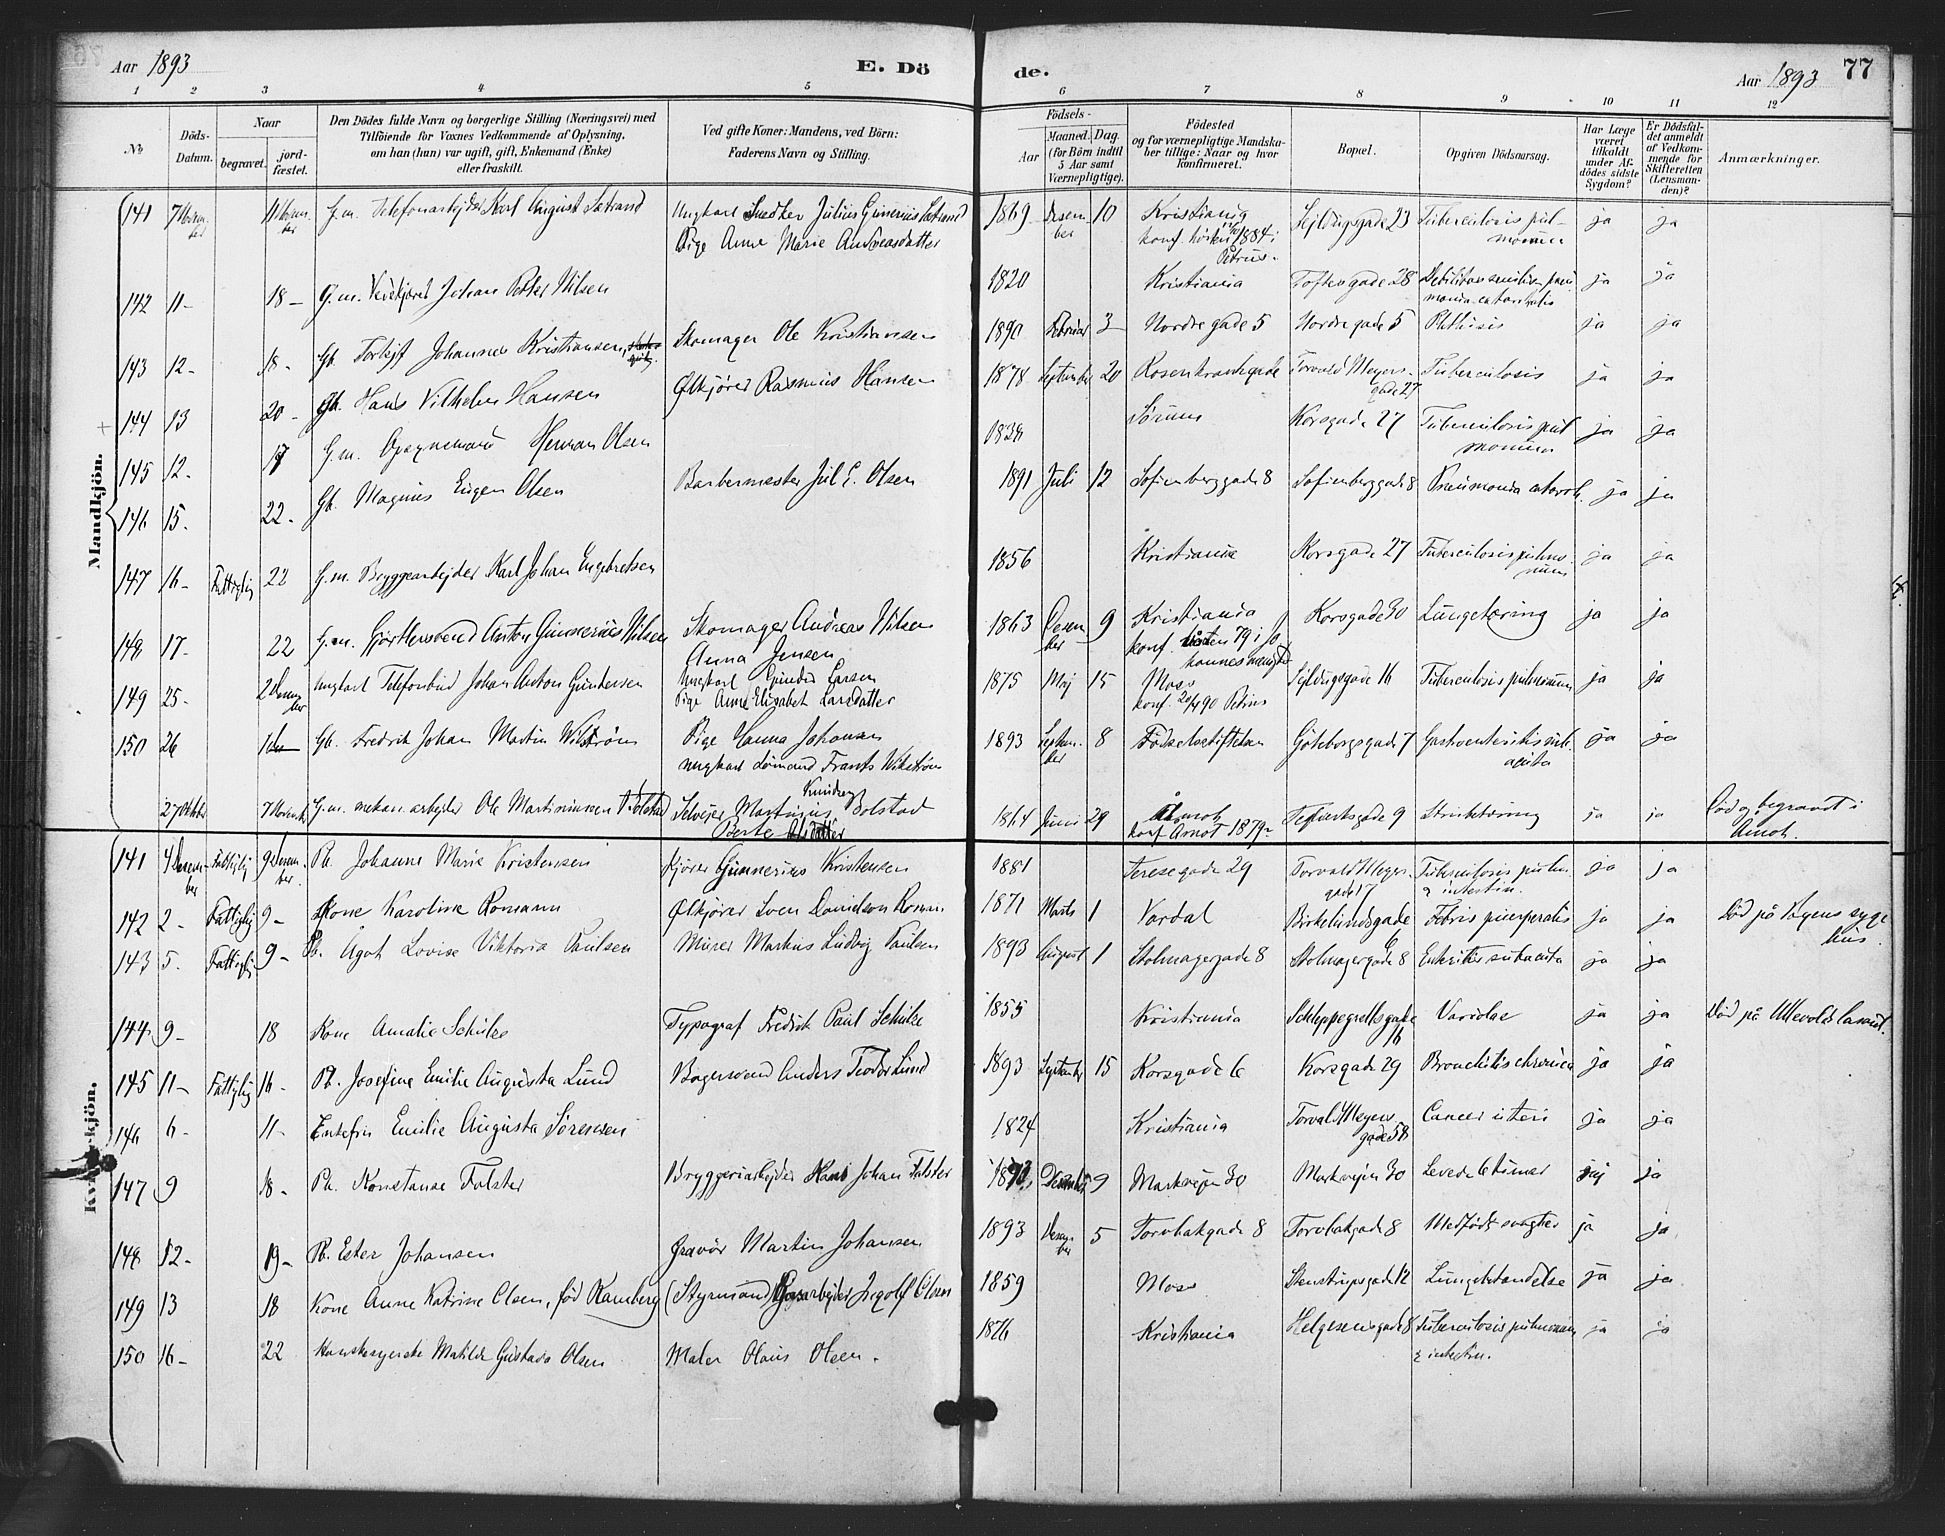 Aar 1893
E. Dö
de.
Aar 1893
77
1 2 3 4 5 6 7 8 9 10 11 12
No
Döds-Datum.
Naar
begravet.
jord-fæstet.
Den Dödes fulde Navn og borgerlige Stilling (Næringsvei) med
Tilföiende for Voxnes Vedkommende af Oplysning,
om han (hun) var ugift, gift, Enkemand (Enke)
eller fraskilt.
Ved gifte Koner: Mandens, ved Börn:
Faderens Navn og Stilling.
Födsels-
Aar
Maaned.
Dag.
(for Börn indtil
5 Aar samt
Værnepligtige).
Födested
og for værnepligtige Mandska-
ber tillige: Naar og hvor
konfirmeret.
Bopæl.
Opgiven Dödsaarsag.
Har Læge
været
tilkaldt
under Af-
dödes sidste
Sygdom?
Er Dödsfal-
det anmeldt
af Vedkom-
mende for
Skifteretten
(Lensman-
den)?
Anmærkninger.
Mandkjön.
141 7 11 G.m. Telefonarbejder Karl August Sætrand Ungkarl Snedker Julius Gunerius Sætrand 1869 Desem- 10 Kristiania Sejldugsgade 23 Tuberculosis pul- ja ja
ber Pige Anne Marie Andreasdatter ber konf. 1884 i monum
Petrus.
142 11- 18- G.m. Johan Petter Nilsen 1820 Kristiania Toftesgade 28 ja ja
143 12- 18- Gb. Johannes Kristiansen Skomager Ole Kristiansen 1890 Februar 3 Nordregade 5 Nordregade 5 Phthisis ja ja
144 13 20- Gb. Hans Vilhelm Hansen Ølkjører Rasmus Hansen 1878 September 20 Rosenkrantzgade Torvald Meyers- Tuberculosis ja ja
gade 27
145 12- 17 G.m. Herman Olsen 1838 Sørum Korsgade 27 Tuberculosis pul ja ja
monum
146 15- 22- Gb. Magnus Eugen Olsen Barbermester Jul. E. Olsen 1891 Juli 12 Sofienberggade 8 Sofienberggade 8 Pneumonia catarrh. ja ja
147 16- Fattiglig 22 G.m. Bryggearbejder Karl Johan Engebretsen 1856 Kristiania Korsgade 27 Tuberculosis pulmo- ja ja
num
148 17- 22 G.m. Anton Gunnerius Nilsen Skomager Andreas Nilsen 1863 Desem- 9 Kristiania Korsgade 30 Lungetæring ja ja
Anna Jensen ber konf. høsten 79 i Jo
hannes menighed
149 25- 2 Desem- Ungkarl Telefonbud Johan Anton Gundersen Ungkarl Gunder Larsen 1875 Maj 15 Moss Sejldugsgade 16 Tuberculosis pulmonum ja ja
ber Pige Anne Elisabet Larsdatter konf. 20/4 90 Petrus
150 26 Gb. Fredrik Johan Martin Wikstrøm Pige Hanna Johansen 1893 Septem- 8 Fødselsstiftelsen Göteborgsgade 7 Gastroenteritis sub- ja ja
Ungkarl Sømand Frants Wikstrøm ber acuta
27 Oktober 7 Novemb. G.m. mekan. arbejder Ole Martiniussen Bolstad Selvejer Martinius Bolstad 1864 Juni 29 Aamot Tegtværksgade 9 Struktæring ja ja Død og begravet i
Berte konf. Amot 1879 Åmot.
Kvindekjön.
141 4 Desem- Fattiglig 9 Desem- Pb. Johanne Marie Kristensen Kjører Gunnerius Kristensen 1881 Teresegade 29 Torvald Meyers- Tuberculosis pulm. ja ja
ber ber. gade 17 & intestin.
142 2- Fattiglig 9- Kone Karoline Romann Ølkjører Sven Danielson Roman 1871 Marts 1 Vardal Birkelundsgade Febris puerperalis ja ja Død på Byens syge
hus.
143 5- Fattiglig 9- Pb. Agot Lovise Viktoria Paulsen Murer Markus Ludvig Paulsen 1893 August 1 Stolmagergade 8 Stolmagergade 8 Enteritis subacuta ja ja
144 9- 18 Kone Amalie Schulze Typograf Fredrik Paul Schulze 1855 Kristiania Schleppegrellsgade Variolae ja ja Død på Ullevolds lasaret.
16
145 11- Fattiglig 16- Pb. Josefine Emilie Augusta Lund Bagersvend Anders Teodor Lund 1893 September 15 Korsgade 6 Korsgade 29 Bronchitis chronica ja ja
146 6- 11- Enkefru Emilie Augusta Sørensen 1824 Kristiania Torvald Meyers Cancer uteri ja ja
gade 58
147 9 18- Pb. Konstanse Falster Bryggeriarbejder Hans Johan Falster 1893 Desember 9 Markvejen 30 Markvejen 30 Levede 6 timer nej ja
148 12- 19- Pb. Ester Johansen Gravör Martin Johansen 1893 Desem- 5 Torvbakgade 8 Torvbakgade 8 Medfødt svaghed ja ja
ber
149 13 18 Kone Anne Katrine Olsen, född Ramberg (Styrmand) Gasarbejder Ingolf Olsen 1859 Moss Stenstrupsgade 12 Lungebetændelse ja ja
150 16- 22 Hanskesyerske Matilde Gustava Olsen Maler Olaus Olsen. 1876 Kristiania Helgesensgade 8 Tuberculosis pulmonum ja ja
& intestin.